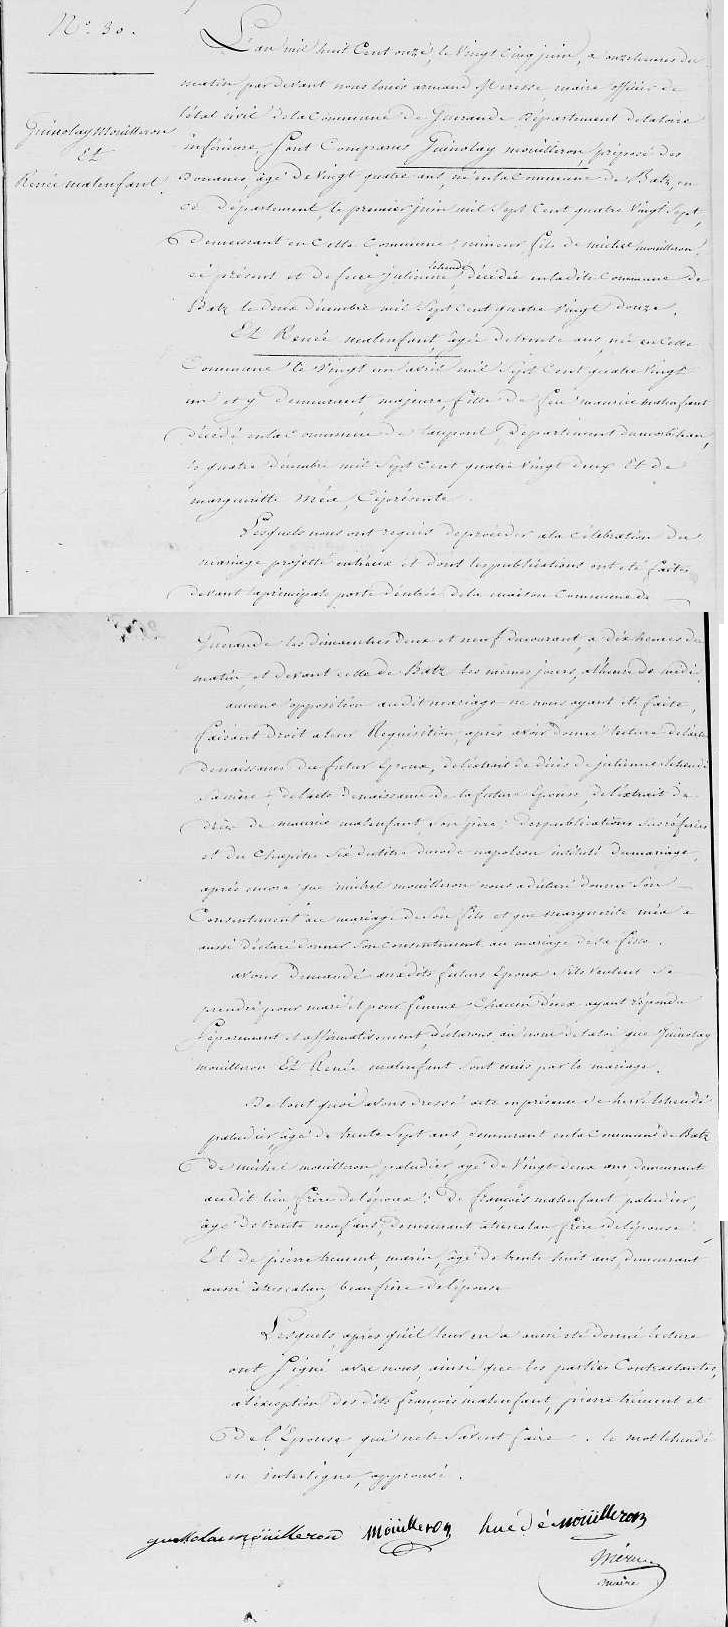 N° 30.
Guénolay Mouilleron
Et
Renée malenfant.
L'an mil huit Cent onze, le Vingt Cinq juin, a onze heures du
matin, par devant nous louis armand maire officier de
l'état civil de la Commune de Guerande Département de la loire
inférieure, Sont Comparus Guénolay mouilleron, préposé des
Douanes, âgé de Vingt quatre ans, né en la Commune de Batz, en
ce Département, le premier juin mil Sept Cent quatre Vingt Sept,
demeurant en Cette Commune, mineur fils de michel mouilleron
cy présent et de feue julienne lehuedé, décédée en ladite Commune de
Batz le deux décembre mil Sept Cent quatre Vingt douze.
Et Renée malenfant, âgée de trente ans, née en Cette
Commune le Vingt un avril mil Sept Cent quatre Vingt
un et y demeurant, majeure, fille de feu maurice malenfant
décédé en la Commune de Département du morbihan,
le quatre décembre mil Sept Cent quatre Vingt deux Et de
margueritte méa, Cy présente.
Lesquels nous ont requis de procéder a la Célébration du
mariage projetté entr'eux et dont les publications ont été faites
devant la principale porte d'entrée de la maison Commune de
Guerande les dimanches deux et neuf du courant, a dix heures du
matin, et devant celle de Batz les mêmes jours, a l'heure de midi,
aucune opposition audit mariage ne nous ayant été faite,
faisant droit a leur Requisition, après avoir donné lecture de l'acte
de naissance du futur Epoux, de l'extrait de décès de julienne lehuedé
Sa mère, de l'acte de naissance de la future Epouse, de l'extrait de
décès de maurice malenfant Son père, des publications
et du Chapitre Six du titre du code napoléon intitulé du mariage,
après encore que michel mouilleron nous a déclaré donner Son
Consentement au mariage de Son fils et que Marguerite méa a
aussi déclaré donner Son consentement au mariage de sa fille.
avons demandé auxdits futurs Epoux S'ils Veulent Se
prendre pour mari et pour femme Chacun d'eux ayant répondu
Séparément et affirmativement, déclarons au nom de la loi que Guénolay
mouilleron Et Renée malenfant Sont unis par le mariage.
De tout quoi avons dressé acte en présence de hervé lehuedé
paludier, âgé de trente Sept ans, demeurant en la Commune de Batz
De michel mouilleron, paludier, âgé de Vingt deux ans, demeurant
audit lieu, frère de l'époux : De françois malenfant paludier,
âgé de trente neuf ans, demeurant à trescalan, frère de l'épouse :
Et de pierre trément, marin, âgé de trente huit ans, demeurant
aussi à trescalan, beau frère de l'épouse
Lesquels, après qu'il leur en a aussi été donné lecture
ont Signé avec nous, ainsi que les parties Contractantes,
a l'exception des dits françois malenfant, pierre trément et
De l'Epouse qui ne le Savent faire. le mot lehuedé
en interligne, approuvé.
mouilleron Mouilleron hué dé mouilleron
maire